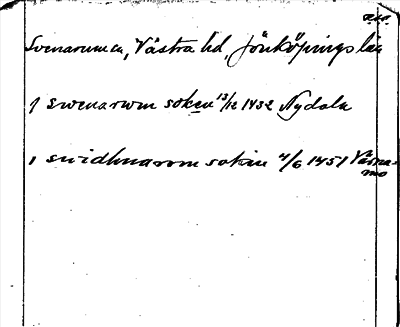 Svenarum sn, Västra hd, Jönköpings län
J swenarwm soken 13/12 1432 Nydala
i swidhnarom sokn 4/6 1451 Värna-
mo